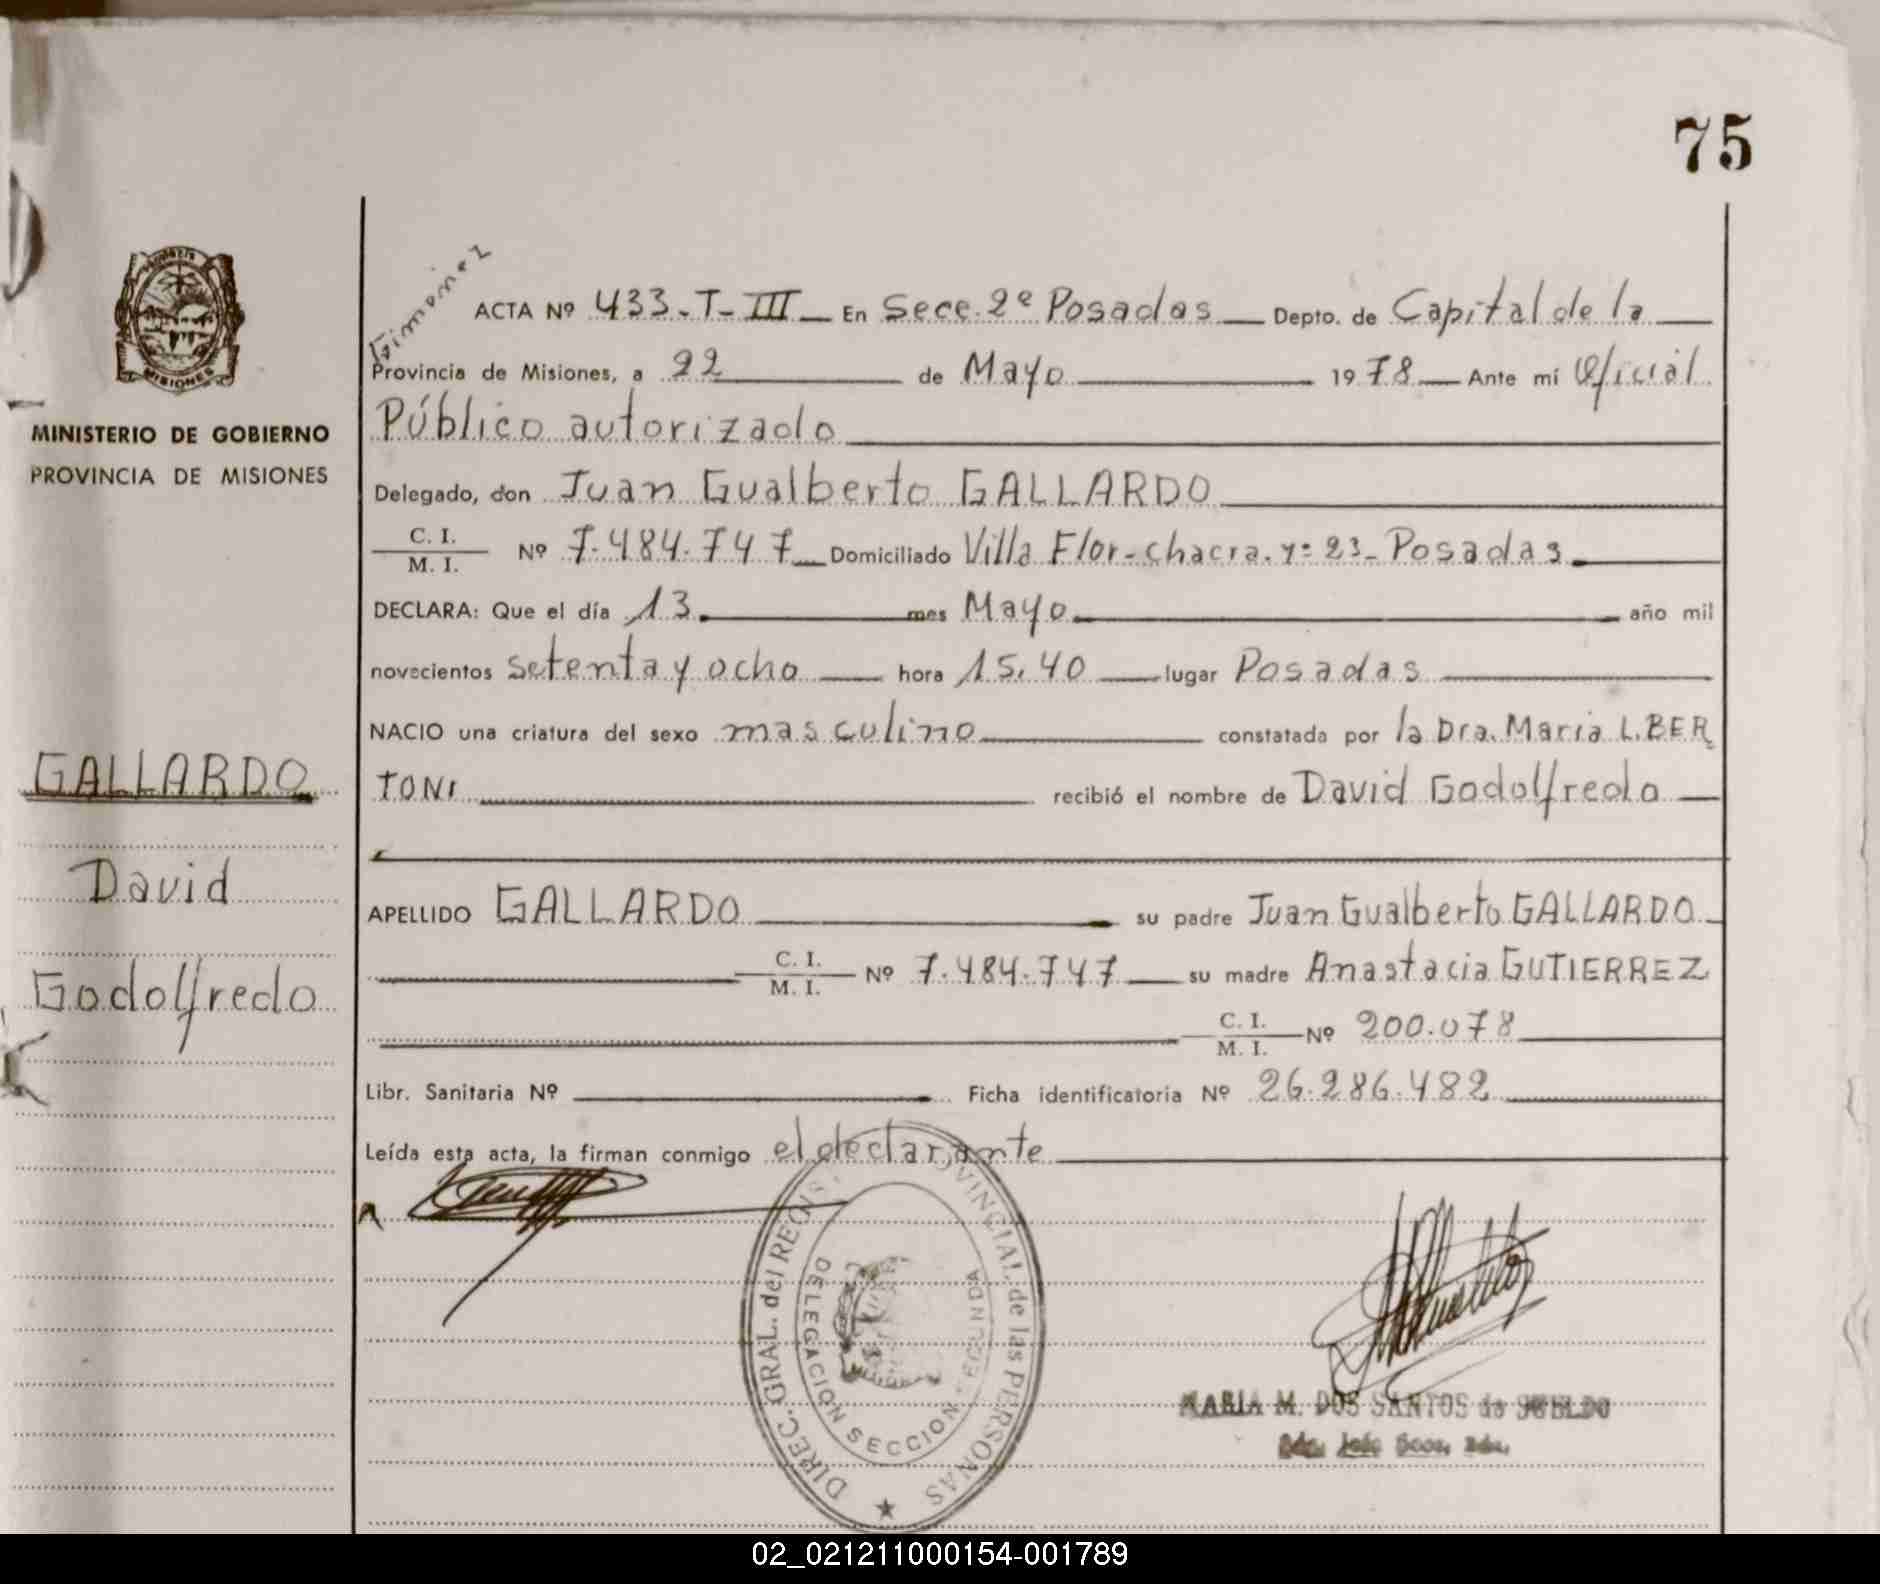 75
MISIONES
MINISTERIO DE GOBIERNO
PROVINCIA DE MISIONES
GALLARDO
David
Godolfredo
ACTA Nº 433-T-III En Secc. 2ª Posadas Depto. de Capital de la
Provincia de Misiones, a 22 de Mayo 1978 Ante mí Oficial
Público autorizado
Delegado, don Juan Gualberto GALLARDO
C. I.
M. I. Nº 7.484.747 Domiciliado Villa Flor-chacra. 23- Posadas
DECLARA: Que el día 13 mes Mayo año mil
novecientos setenta y ocho hora 15.40 lugar Posadas
NACIO una criatura del sexo masculino constatada por la Dra. Maria L. BER
TONI recibió el nombre de David Godolfredo
APELLIDO GALLARDO su padre Juan Gualberto GALLARDO
C. I.
M. I. Nº 7.484.747 su madre Anastacia GUTIERREZ
C. I.
M. I. Nº 200.078
Libr. Sanitaria Nº Ficha identificatoria Nº 26.286.482
Leída esta acta, la firman conmigo el declarante
DIREC. GRAL. del REG. PROVINCIAL de las PERSONAS
DELEGACION SECCION SEGUNDA
MARIA M. DOS SANTOS de
02_021211000154-001789